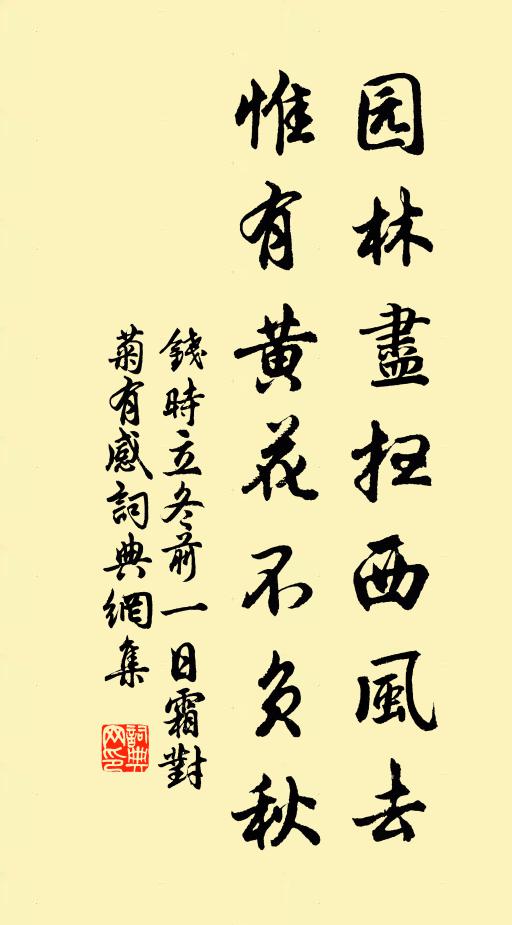 园林盡扫西風去
惟有黄花不负秋
錢時立冬前一日霜對
菊有感詞典網集
詞典
网印